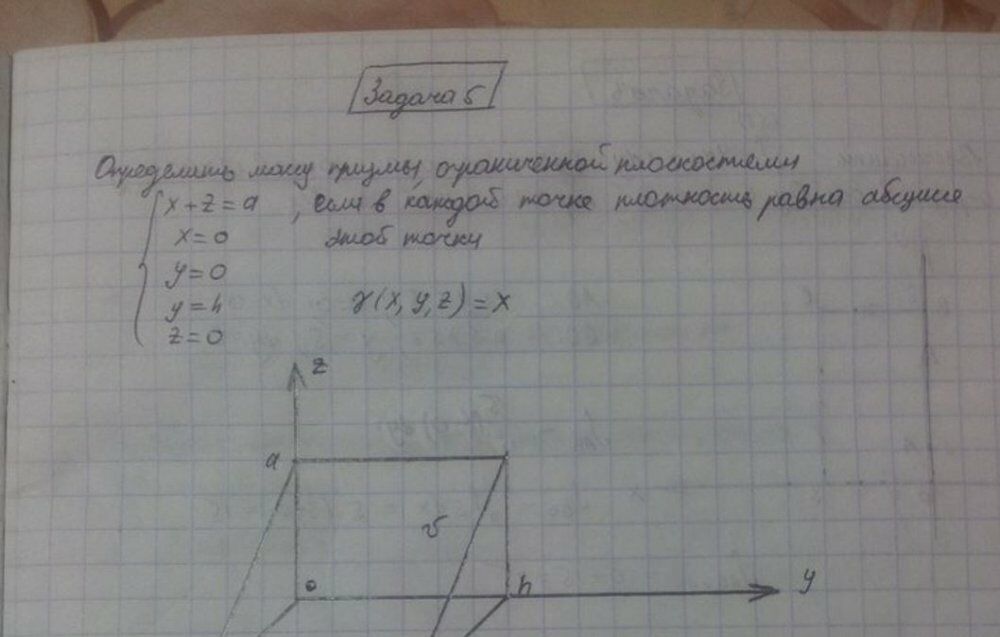 Задача 5
Определить массу призмы, ограниченной плоскостями
x+z=a , если в каждой точке плотность равна абсциссе
x=0 этой точки
y=0
y=h γ(x,y,z)=x
z=0
z
a
v
0 h y